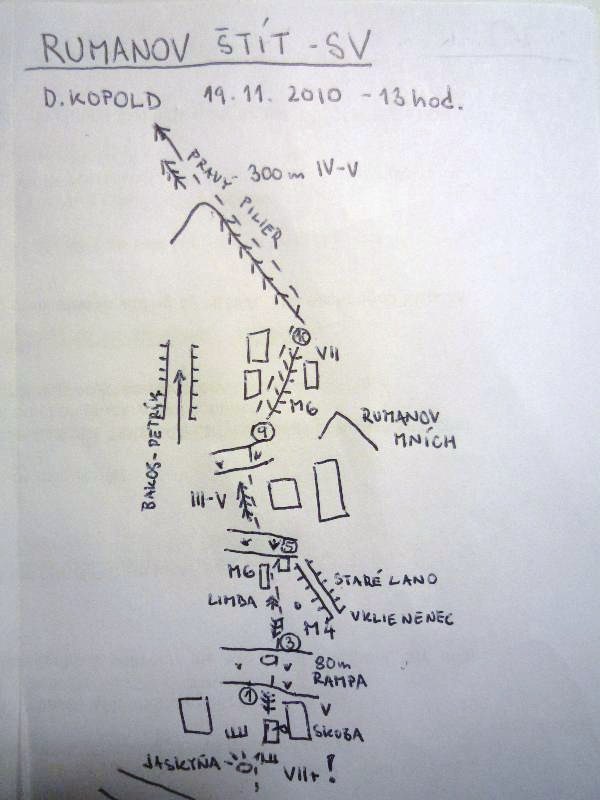 RUMANOV ŠTÍT - SV
D. KOPOLD 19.11. 2010 - 13 hod.
PRAVÝ PILIER - 300m IV-V
10
VII
M6
9
RUMANOV
MNÍCH
BAKOS-DETRÍK
III-V
5
M6
STARÉ LANO
LIMBA
VKLIENENEC
M4
3
80m
RAMPA
1
V
SKOBA
JASKYŇA
VII+!